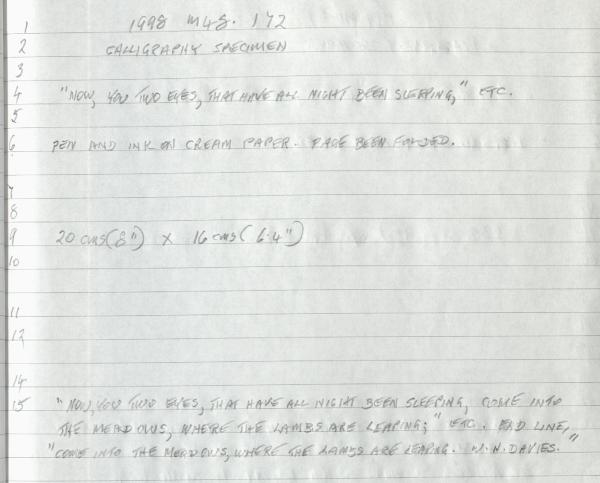 1 1998 M48. 172
2 CALLIGRAPHY SPECIMEN
3
4 "NOW, YOU TWO EYES, THAT HAVE ALL NIGHT BEEN SLEEPING," ETC.
5
6 PEN AND INK ON CREAM PAPER. PAGE BEEN FOLDED.
7
8
9 20 cms (8") x 16 cms (6.4")
10
11
12
14
15 "NOW, YOU TWO EYES, THAT HAVE ALL NIGHT BEEN SLEEPING, COME INTO
THE MEADOWS, WHERE THE LAMBS ARE LEAPING;" ETC. END LINE,
"COME INTO THE MEADOWS, WHERE THE LAMBS ARE LEAPING. W. H. DAVIES."